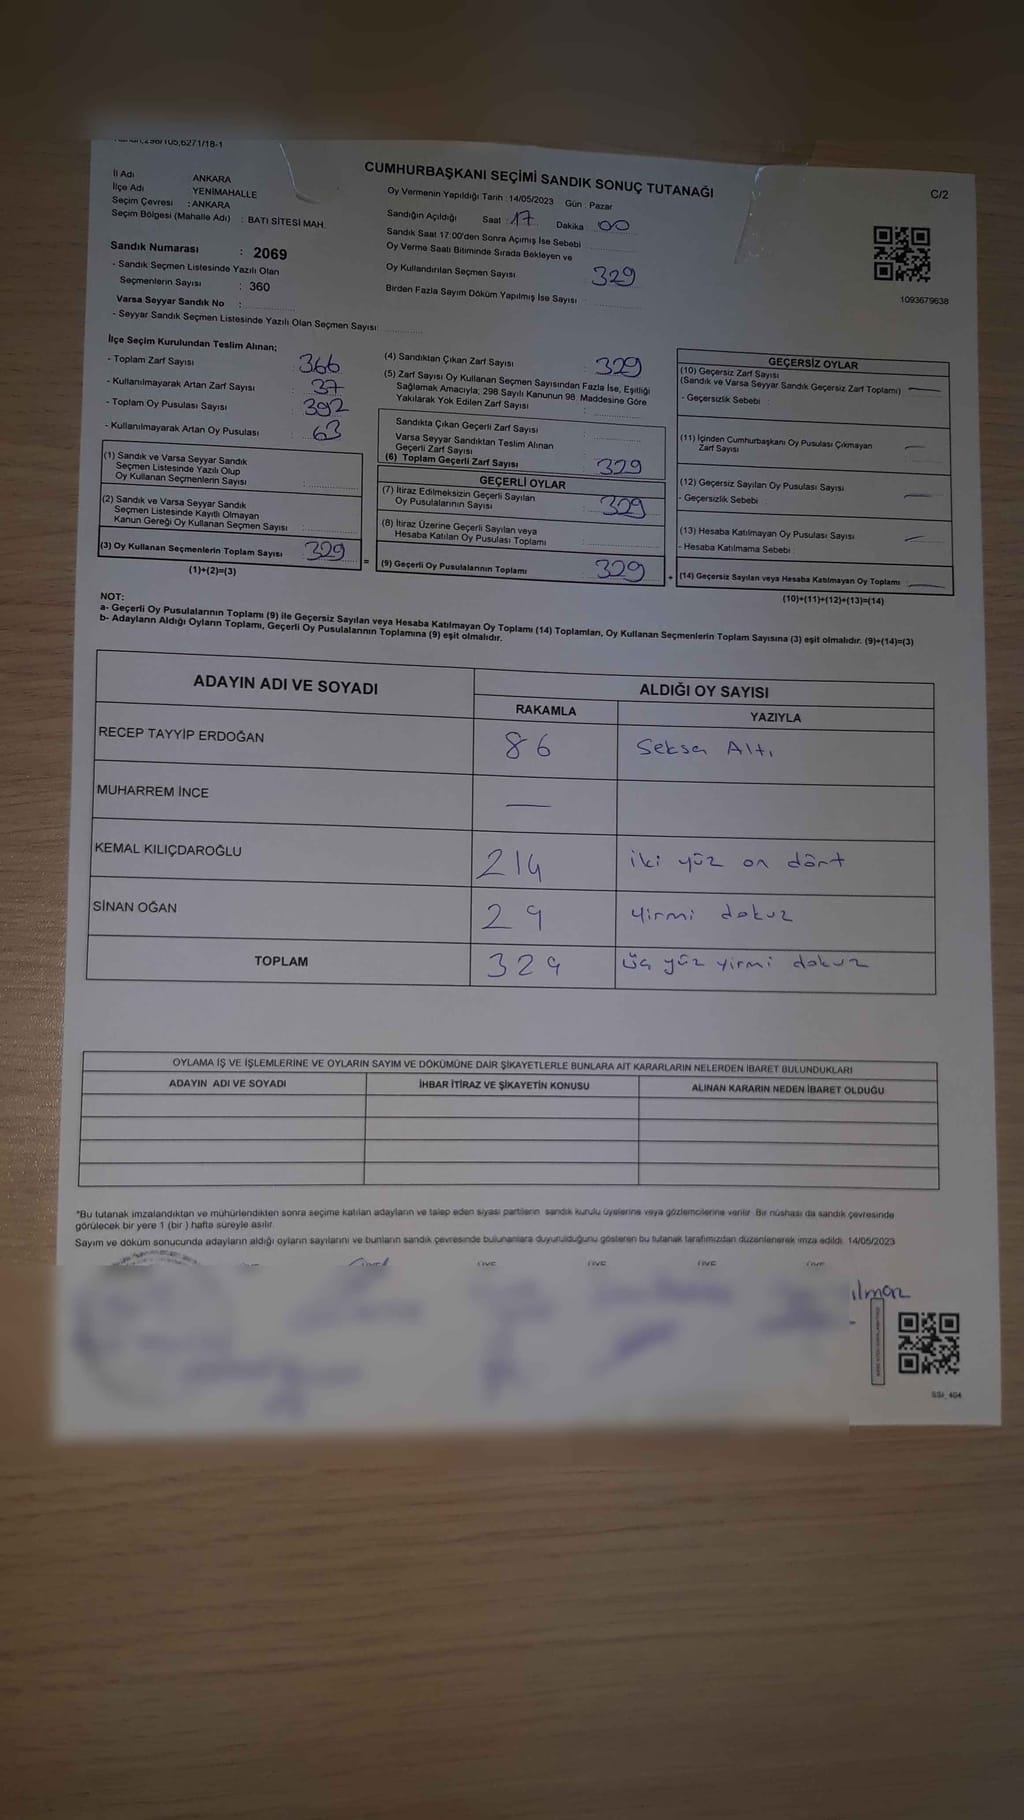 CUMHURBAŞKANI SEÇİMİ SANDIK SONUÇ TUTANAĞI
C/2
İl Adı ANKARA
İlçe Adı YENİMAHALLE
Seçim Çevresi : ANKARA
Seçim Bölgesi (Mahalle Adı) : BATI SİTESİ MAH.
Sandık Numarası : 2069
- Sandık Seçmen Listesinde Yazılı Olan
Seçmenlerin Sayısı : 360
Varsa Seyyar Sandık No :
- Seyyar Sandık Seçmen Listesinde Yazılı Olan Seçmen Sayısı:
Oy Vermenin Yapıldığı Tarih : 14/05/2023 Gün : Pazar
Sandığın Açıldığı Saat : 17 Dakika 00
Sandık Saat 17:00'den Sonra Açımış İse Sebebi
Oy Verme Saati Bitiminde Sırada Bekleyen ve
Oy Kullandırılan Seçmen Sayısı 329
Birden Fazla Sayım Döküm Yapılmış İse Sayısı
1093679638
İlçe Seçim Kurulundan Teslim Alınan;
- Toplam Zarf Sayısı : 366
- Kullanılmayarak Artan Zarf Sayısı : 37
- Toplam Oy Pusulası Sayısı : 392
- Kullanılmayarak Artan Oy Pusulası : 63
(1) Sandık ve Varsa Seyyar Sandık
Seçmen Listesinde Yazılı Olup
Oy Kullanan Seçmenlerin Sayısı :
(2) Sandık ve Varsa Seyyar Sandık
Seçmen Listesinde Kayıtlı Olmayan
Kanun Gereği Oy Kullanan Seçmen Sayısı :
(3) Oy Kullanan Seçmenlerin Toplam Sayısı : 329
(1)+(2)=(3)
(4) Sandıktan Çıkan Zarf Sayısı : 329
(5) Zarf Sayısı Oy Kullanan Seçmen Sayısından Fazla İse, Eşitliği
Sağlamak Amacıyla; 298 Sayılı Kanunun 98. Maddesine Göre
Yakılarak Yok Edilen Zarf Sayısı :
Sandıkta Çıkan Geçerli Zarf Sayısı :
Varsa Seyyar Sandıktan Teslim Alınan
Geçerli Zarf Sayısı :
(6) Toplam Geçerli Zarf Sayısı : 329
GEÇERLİ OYLAR
(7) İtiraz Edilmeksizin Geçerli Sayılan
Oy Pusulalarının Sayısı : 329
(8) İtiraz Üzerine Geçerli Sayılan veya
Hesaba Katılan Oy Pusulası Toplamı :
= (9) Geçerli Oy Pusulalarının Toplamı : 329 +
GEÇERSİZ OYLAR
(10) Geçersiz Zarf Sayısı
(Sandık ve Varsa Seyyar Sandık Geçersiz Zarf Toplamı) —
- Geçersizlik Sebebi :
(11) İçinden Cumhurbaşkanı Oy Pusulası Çıkmayan
Zarf Sayısı : —
(12) Geçersiz Sayılan Oy Pusulası Sayısı : —
- Geçersizlik Sebebi :
(13) Hesaba Katılmayan Oy Pusulası Sayısı : —
- Hesaba Katılmama Sebebi :
(14) Geçersiz Sayılan veya Hesaba Katılmayan Oy Toplamı : —
(10)+(11)+(12)+(13)=(14)
NOT:
a- Geçerli Oy Pusulalarının Toplamı (9) ile Geçersiz Sayılan veya Hesaba Katılmayan Oy Toplamı (14) Toplamları, Oy Kullanan Seçmenlerin Toplam Sayısına (3) eşit olmalıdır. (9)+(14)=(3)
b- Adayların Aldığı Oyların Toplamı, Geçerli Oy Pusulalarının Toplamına (9) eşit olmalıdır.
ADAYIN ADI VE SOYADI ALDIĞI OY SAYISI
RAKAMLA YAZIYLA
RECEP TAYYİP ERDOĞAN 86 Seksen Altı
MUHARREM İNCE —
KEMAL KILIÇDAROĞLU 214 iki yüz on dört
SİNAN OĞAN 29 yirmi dokuz
TOPLAM 329 üç yüz yirmi dokuz
OYLAMA İŞ VE İŞLEMLERİNE VE OYLARIN SAYIM VE DÖKÜMÜNE DAİR ŞİKAYETLERLE BUNLARA AİT KARARLARIN NELERDEN İBARET BULUNDUKLARI
ADAYIN ADI VE SOYADI İHBAR İTİRAZ VE ŞİKAYETİN KONUSU ALINAN KARARIN NEDEN İBARET OLDUĞU
*Bu tutanak imzalandıktan ve mühürlendikten sonra seçime katılan adayların ve talep eden siyasi partilerin sandık kurulu üyelerine veya gözlemcilerine verilir. Bir nüshası da sandık çevresinde
görülecek bir yere 1 (bir ) hafta süreyle asılır.
Sayım ve döküm sonucunda adayların aldığı oyların sayılarını ve bunların sandık çevresinde bulunanlara duyurulduğunu gösteren bu tutanak tarafımızdan düzenlenerek imza edildi. 14/05/2023
SSI_404